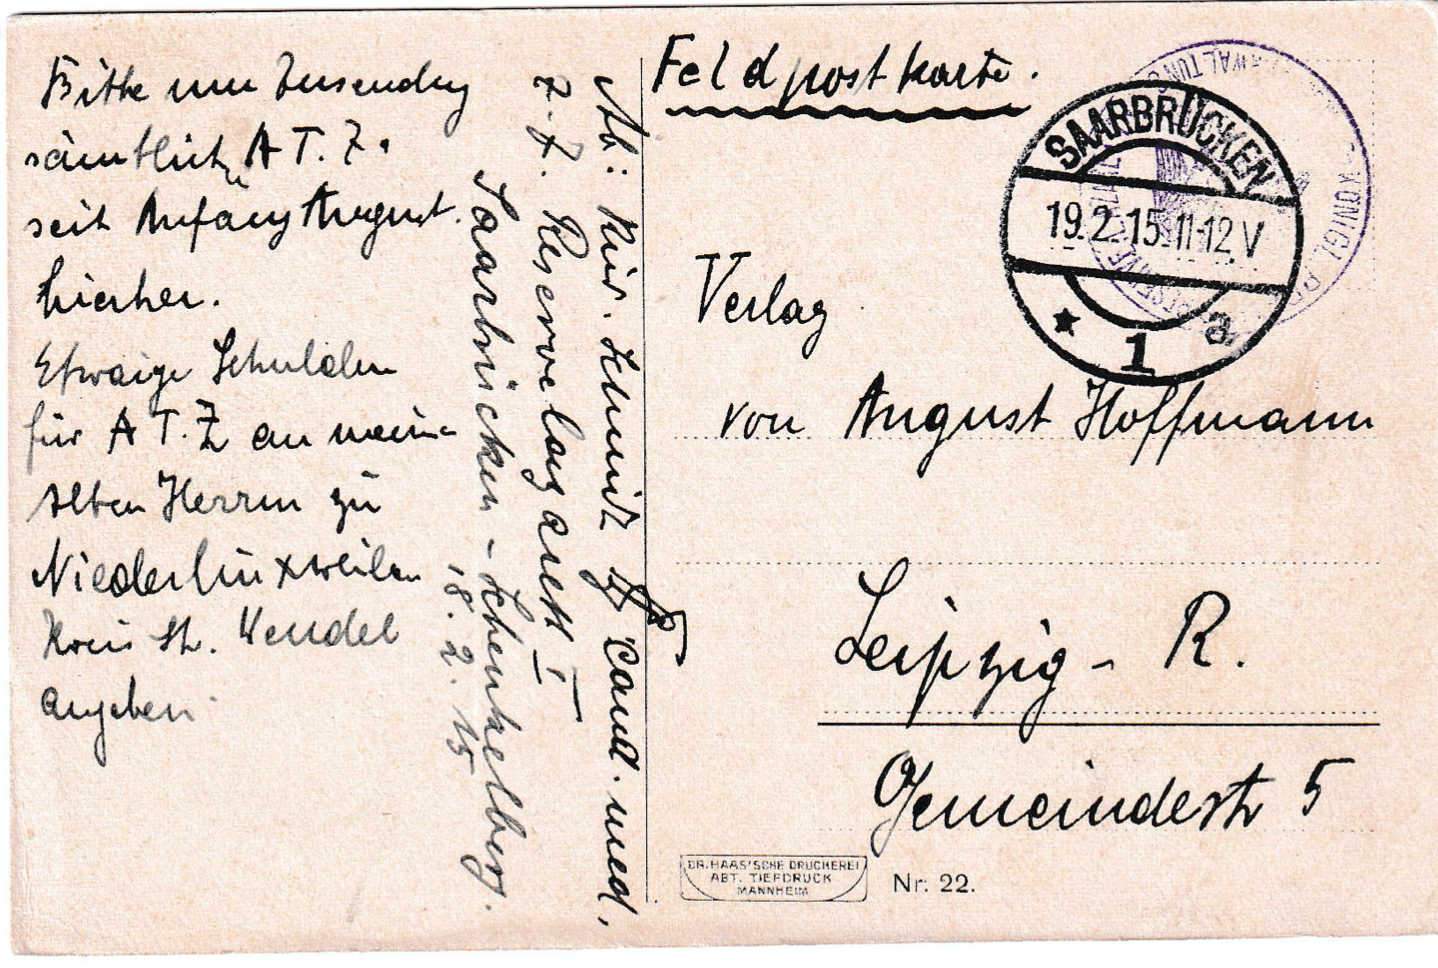 Bitte um Zusendung
sämtlich. A. T. Z.
seit Anfang August
hierher.
Etwaige Schulden
für A. T. Z an meine
Alten Herrn zu
Niederlinxweiler
Kreis St. Wendel
angeben.
Ab: Kür. Schmidt cand. med.
z. Z. Reservelazarett I
Saarbrücken - Schenkelberg.
18. 2. 15
Feldpostkarte.
SAARBRÜCKEN
19.2.15.11-12.V
* 1 a
Verlag
von August Hoffmann
Leipzig - R.
Gemeindestr 5
DR. HAAS'SCHE DRUCKEREI
ABT. TIEFDRUCK
MANNHEIM
Nr. 22.